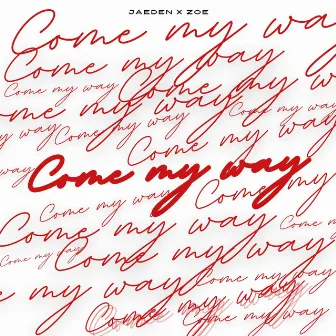 JAEDEN X ZOE
Come my way
Come my way
Come my way
Come my way
Come my way
Come my way
way
Come my way
way
Come my way
Come my
Come my way
Come my way
Come my way
Come my
Come my way
Come my way
Come my way
Come my way